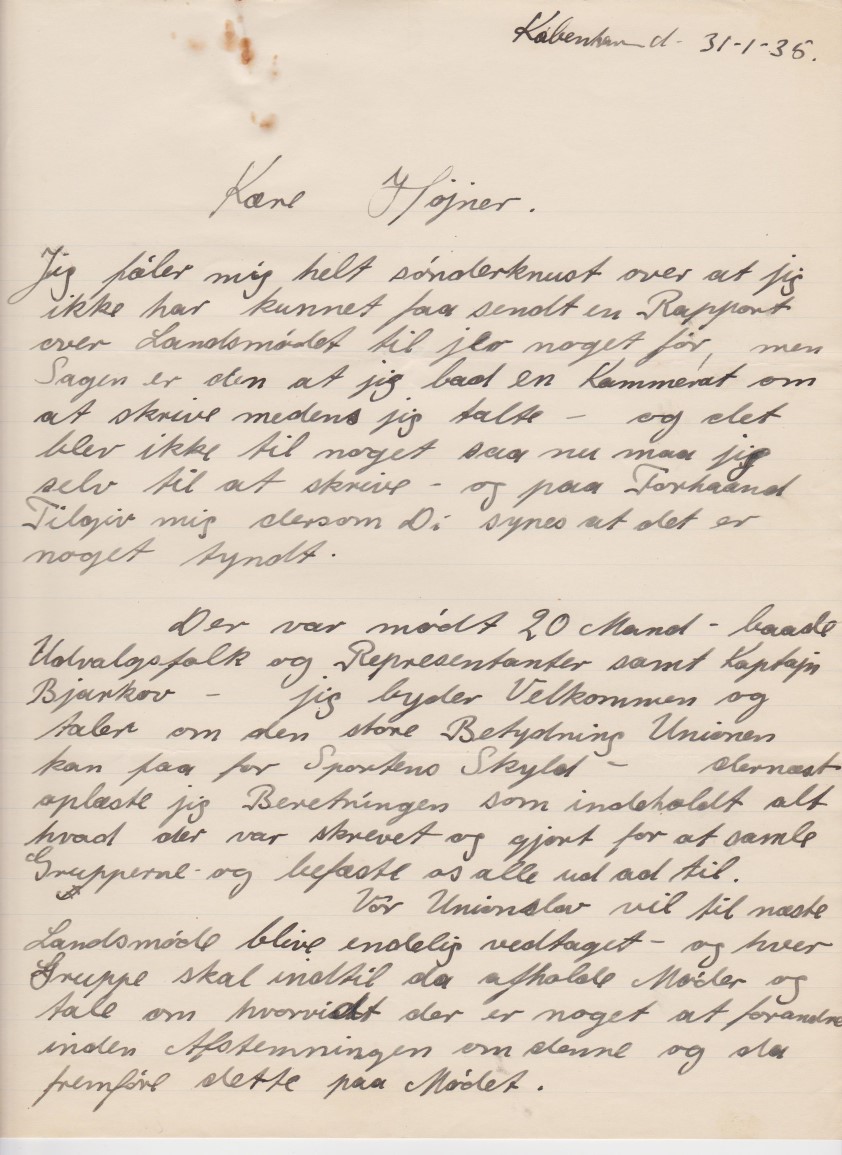 København d. 31-1-36.
Kære Højner.
Jig føler mig helt sønderknust over at jig
ikke har kunnet faa sendt en Rapport
over Landsmødet til jer noget før, men
Sagen er den at jig bad en Kammerat om
at skrive medens jig talte - og det
blev ikke til noget saa nu maa jig
selv til at skrive - og paa Forhaand
Tilgiv mig dersom Di synes at det er
noget tyndt.
Der var mødt 20 Mand - baade
Udvalgsfolk og Representanter samt Kaptajn
Bjarkov - jig byder Velkommen og
taler om den store Betydning Unionen
kan faa for Sportens Skyld - dernæst
oplæste jig Beretningen som indeholdt alt
hvad der var skrevet og gjort for at samle
Grupperne - og befæste os alle ud ad til.
Vor Unionslov vil til næste
Landsmøde blive endelig vedtaget - og hver
Gruppe skal indtil da afholde Møder og
tale om hvorvidt der er noget at forandre
inden Afstemningen om denne og da
fremføre dette paa Mødet.